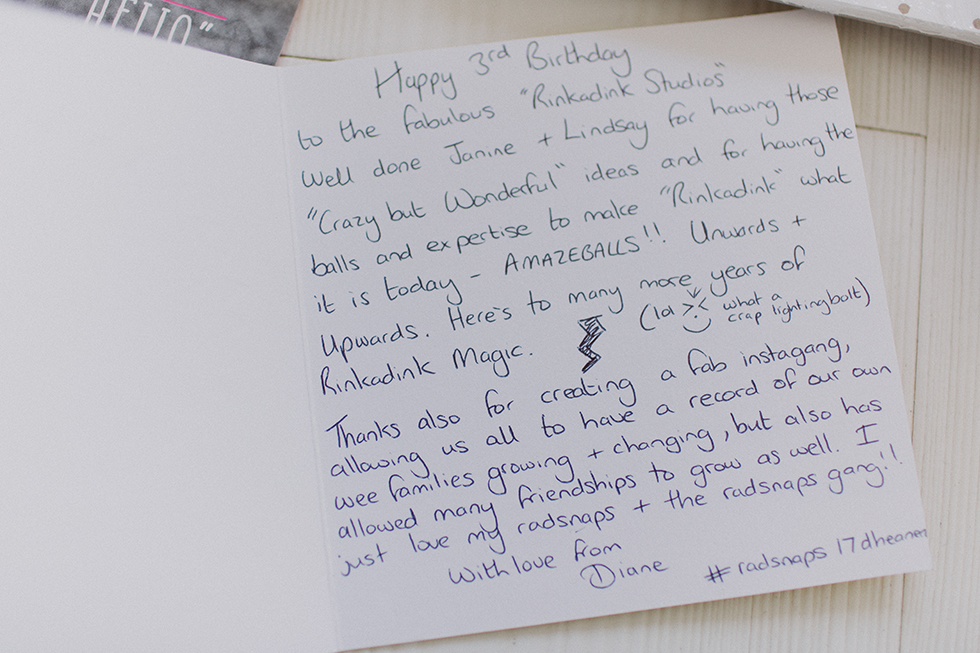 HELLO"
Happy 3rd Birthday
to the fabulous "Rinkadink Studios"
Well done Janine + Lindsay for having those
"Crazy but Wonderful" ideas and for having the
balls and expertise to make "Rinkadink" what
it is today - AMAZEBALLS!! Unwards +
Upwards. Here's to many more years of
Rinkadink Magic.
(lol what a
crap lightingbolt)
Thanks also for creating a fab instagang,
allowing us all to have a record of our own
wee families growing + changing, but also has
allowed many friendships to grow as well. I
just love my radsnaps + the radsnaps gang!!
With love from
Diane
#radsnaps17dheanen